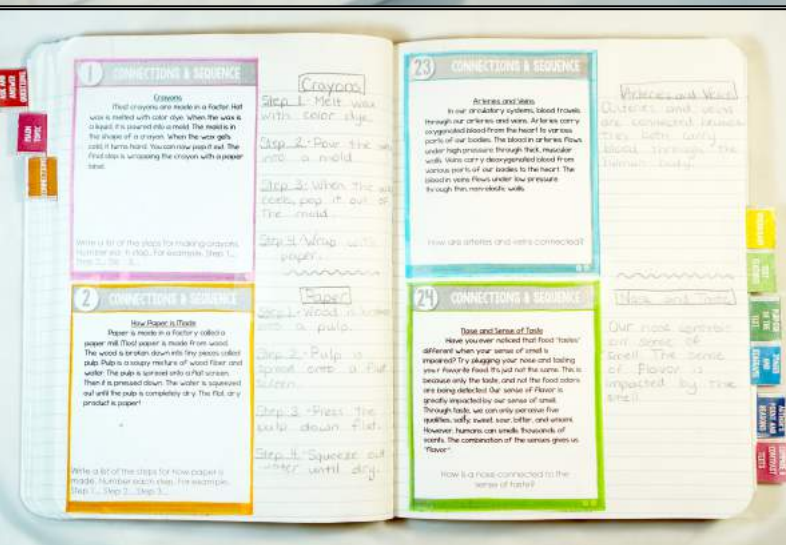 1 CONNECTIONS & SEQUENCE
Crayons
Most crayons are made in a factor. Hot
wax is melted with color dye. When the wax is
a liquid, it is poured into a mold. The mold is in
the shape of a crayon. When the wax gets
cold, it turns hard. You can now pop it out. The
final step is wrapping the crayon with a paper
label.
Write a list of the steps for making crayons.
Number each step. For example, Step 1...
Step 2... Step 3...
Crayons
Step 1- Melt wax
with color dye.
Step 2- Pour the wax
into a mold
Step 3: When the wax
cools, pop it out of
the mold.
Step 4: Wrap with
paper.
2 CONNECTIONS & SEQUENCE
How Paper is Made
Paper is made in a factory called a
paper mill. Most paper is made from wood.
The wood is broken down into tiny pieces called
pulp. Pulp is a soupy mixture of wood fiber and
water. The pulp is spread onto a flat screen.
Then it is pressed down. The water is squeezed
out until the pulp is completely dry. The flat, dry
product is paper!
Write a list of the steps for how paper is
made. Number each step. For example,
Step 1... Step 2... Step 3...
Paper
Step 1- Wood is
into a pulp.
Step 2- Pulp is
spread onto a flat
screen.
Step 3- Press the
pulp down flat.
Step 4- Squeeze out
water until dry.
23 CONNECTIONS & SEQUENCE
Arteries and Veins
In our circulatory systems, blood travels
through our arteries and veins. Arteries carry
oxygenated blood from the heart to various
parts of our bodies. The blood in arteries flows
under high pressure through thick, muscular
walls. Veins carry deoxygenated blood from
various parts of our bodies to the heart. The
blood in veins flows under low pressure
through thin, non-elastic walls.
How are arteries and veins connected?
Arteries and Veins
and veins
are connected because
they both carry
blood through the
human body.
24 CONNECTIONS & SEQUENCE
Nose and Sense of Taste
Have you ever noticed that food "tastes"
different when your sense of smell is
impaired? Try plugging your nose and tasting
your favorite food. It's just not the same. This is
because only the taste, and not the food odors
are being detected. Our sense of flavor is
greatly impacted by our sense of smell.
Through taste, we can only perceive five
qualities, salty, sweet, sour, bitter, and umami.
However, humans can smells thousands of
scents. The combination of the senses gives us
"flavor".
How is a nose connected to the
sense of taste?
Nose and Taste
Our nose controls
our sense of
smell. The sense
of flavor is
impacted by the
smell.
TEXT
FEATURES
AUTHOR'S
POINT AND
REASONS
COMPARE &
CONTRAST
TEXTS